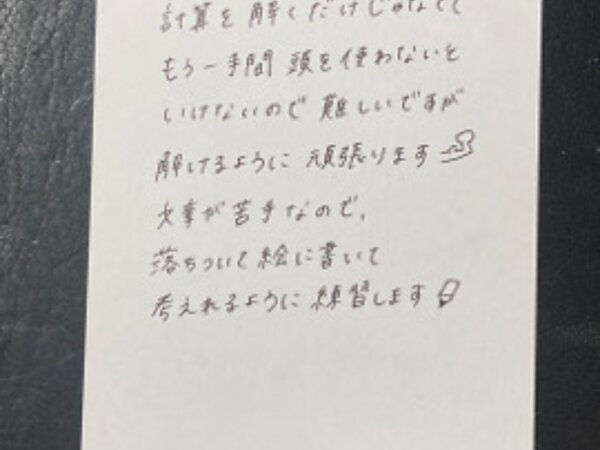 計算を解くだけじゃなくて
もう一手間 頭を使わないと
いけないので 難しいですが
解けるように 頑張ります
文章が苦手なので、
落ちついて絵に書いて
考えれるように練習します